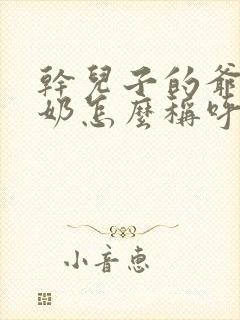 幹兒子的爺
奶怎麼稱呼
小音惠